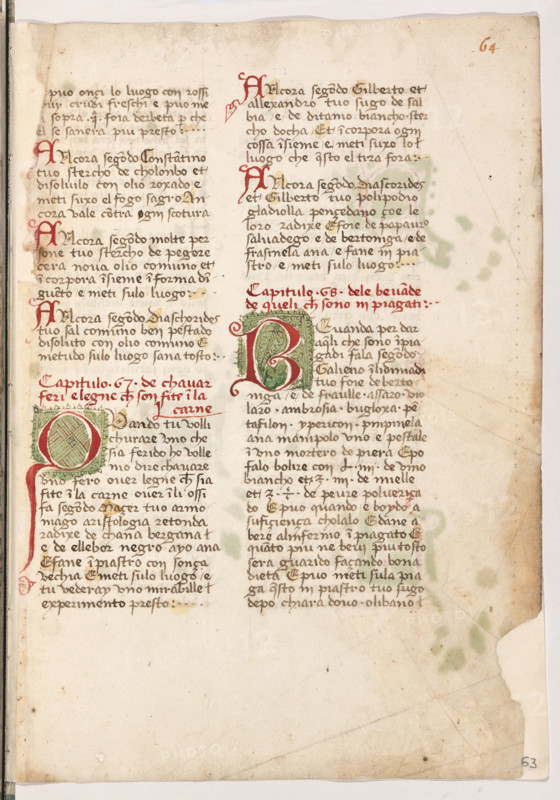 64
puo onci lo luogo con rossi
ruy crudi freschi e puo me
sopra .q̃. foia derbeta p che
el se sanera piu presto :····
ANcora segõdo Constãtino
tuo stercho de cholonbo et
disoluilo con olio roxado e
meti suxo el fogo sagro An
cora vale cõtra ogni scotura
ANcora segõdo molte per
sone tuo stercho de pegore
cera noua olio comuno et
ĩcorpora ĩsieme ĩ forma dũ
guẽto e meti sulo luogo :·
ANcora segõdo Diaschorides
tuo sal comũno ben pestado
disoluto con olio comuno E
metudo sulo luogo sana tosto :··
Capitulo · 67 · de chauar
feri e legne ch̃ son fite ĩ la
carne
Quando tu volli
chauare vno che
sia ferido ho volle
mo dire chauare
vno fero ouer legne ch̃ sia
fite ĩ la carne ouer ĩ li ossi
fa segõdo tuo armo
niago aristologia retonda
radixe de chana
e de ellebor negro ayo ana
E fane ĩpiastro con songa
vechia E meti sulo luogo e
tu vederay vno mirabille
experimento presto :····
ANcora segõdo Gilberto et
allexandro tuo sugo de sal
bia e de ditamo biancho ster
cho docha Et ĩcorpora ogni
cossa ĩsieme e meti suxo lo
luogo che q̃sto el tira fora :··
ANcora segõdo Diascorides
et Gilberto tuo polipodio
gladiolla çoe le
loro radixe E foie de papauero
saluadego e de bertoniga e de
frasinela ana e fane in pia
stro e meti sulo luogo :····
Capitulo · 68 · dele beuãde
de queli ch̃ sono in piagati :··
BEuanda per dar
a q̃li che sono ĩpia
gadi fala segõdo
Galieno
tuo foie de berto
niga e de frauille · assaro · vio
laro · ambrosia · bugloxa · pe
tafilon · ypericon · pinpinela
ana manipolo vno e pestale
ĩ vno mortero de piera E po
falo bolire con · iii · de vino
biancho et · iii · de mielle
et de peure poluerica
do E puo quando e boydo a
suficiença cholalo E dane a
bere alinfermo ĩ piagato E
quãto piu ne beui piu tosto
sera guarido façando bona
dieta E puo meti sula pia
ga q̃sto in piastro tuo sugo
depo chiara douo · olibano
63